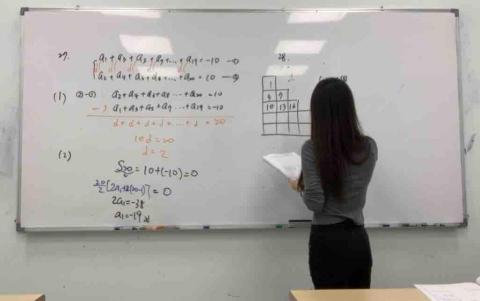 27.
a₁+a₃+a₅+a₇+...+a₁₉=-10 -①
a₂+a₄+a₆+a₈+...+a₂₀=10 -②
(1) ②-① a₂+a₄+a₆+a₈+...+a₂₀=10
-) a₁+a₃+a₅+a₇...+a₁₉=-10
d+d+d+d+...+d=20
10d=20
d=2
(2)
S₂₀=10+(-10)=0
20/2[2a₁+2(20-1)]=0
2a₁=-38
a₁=-19
28.
1
4 7
10 13 16